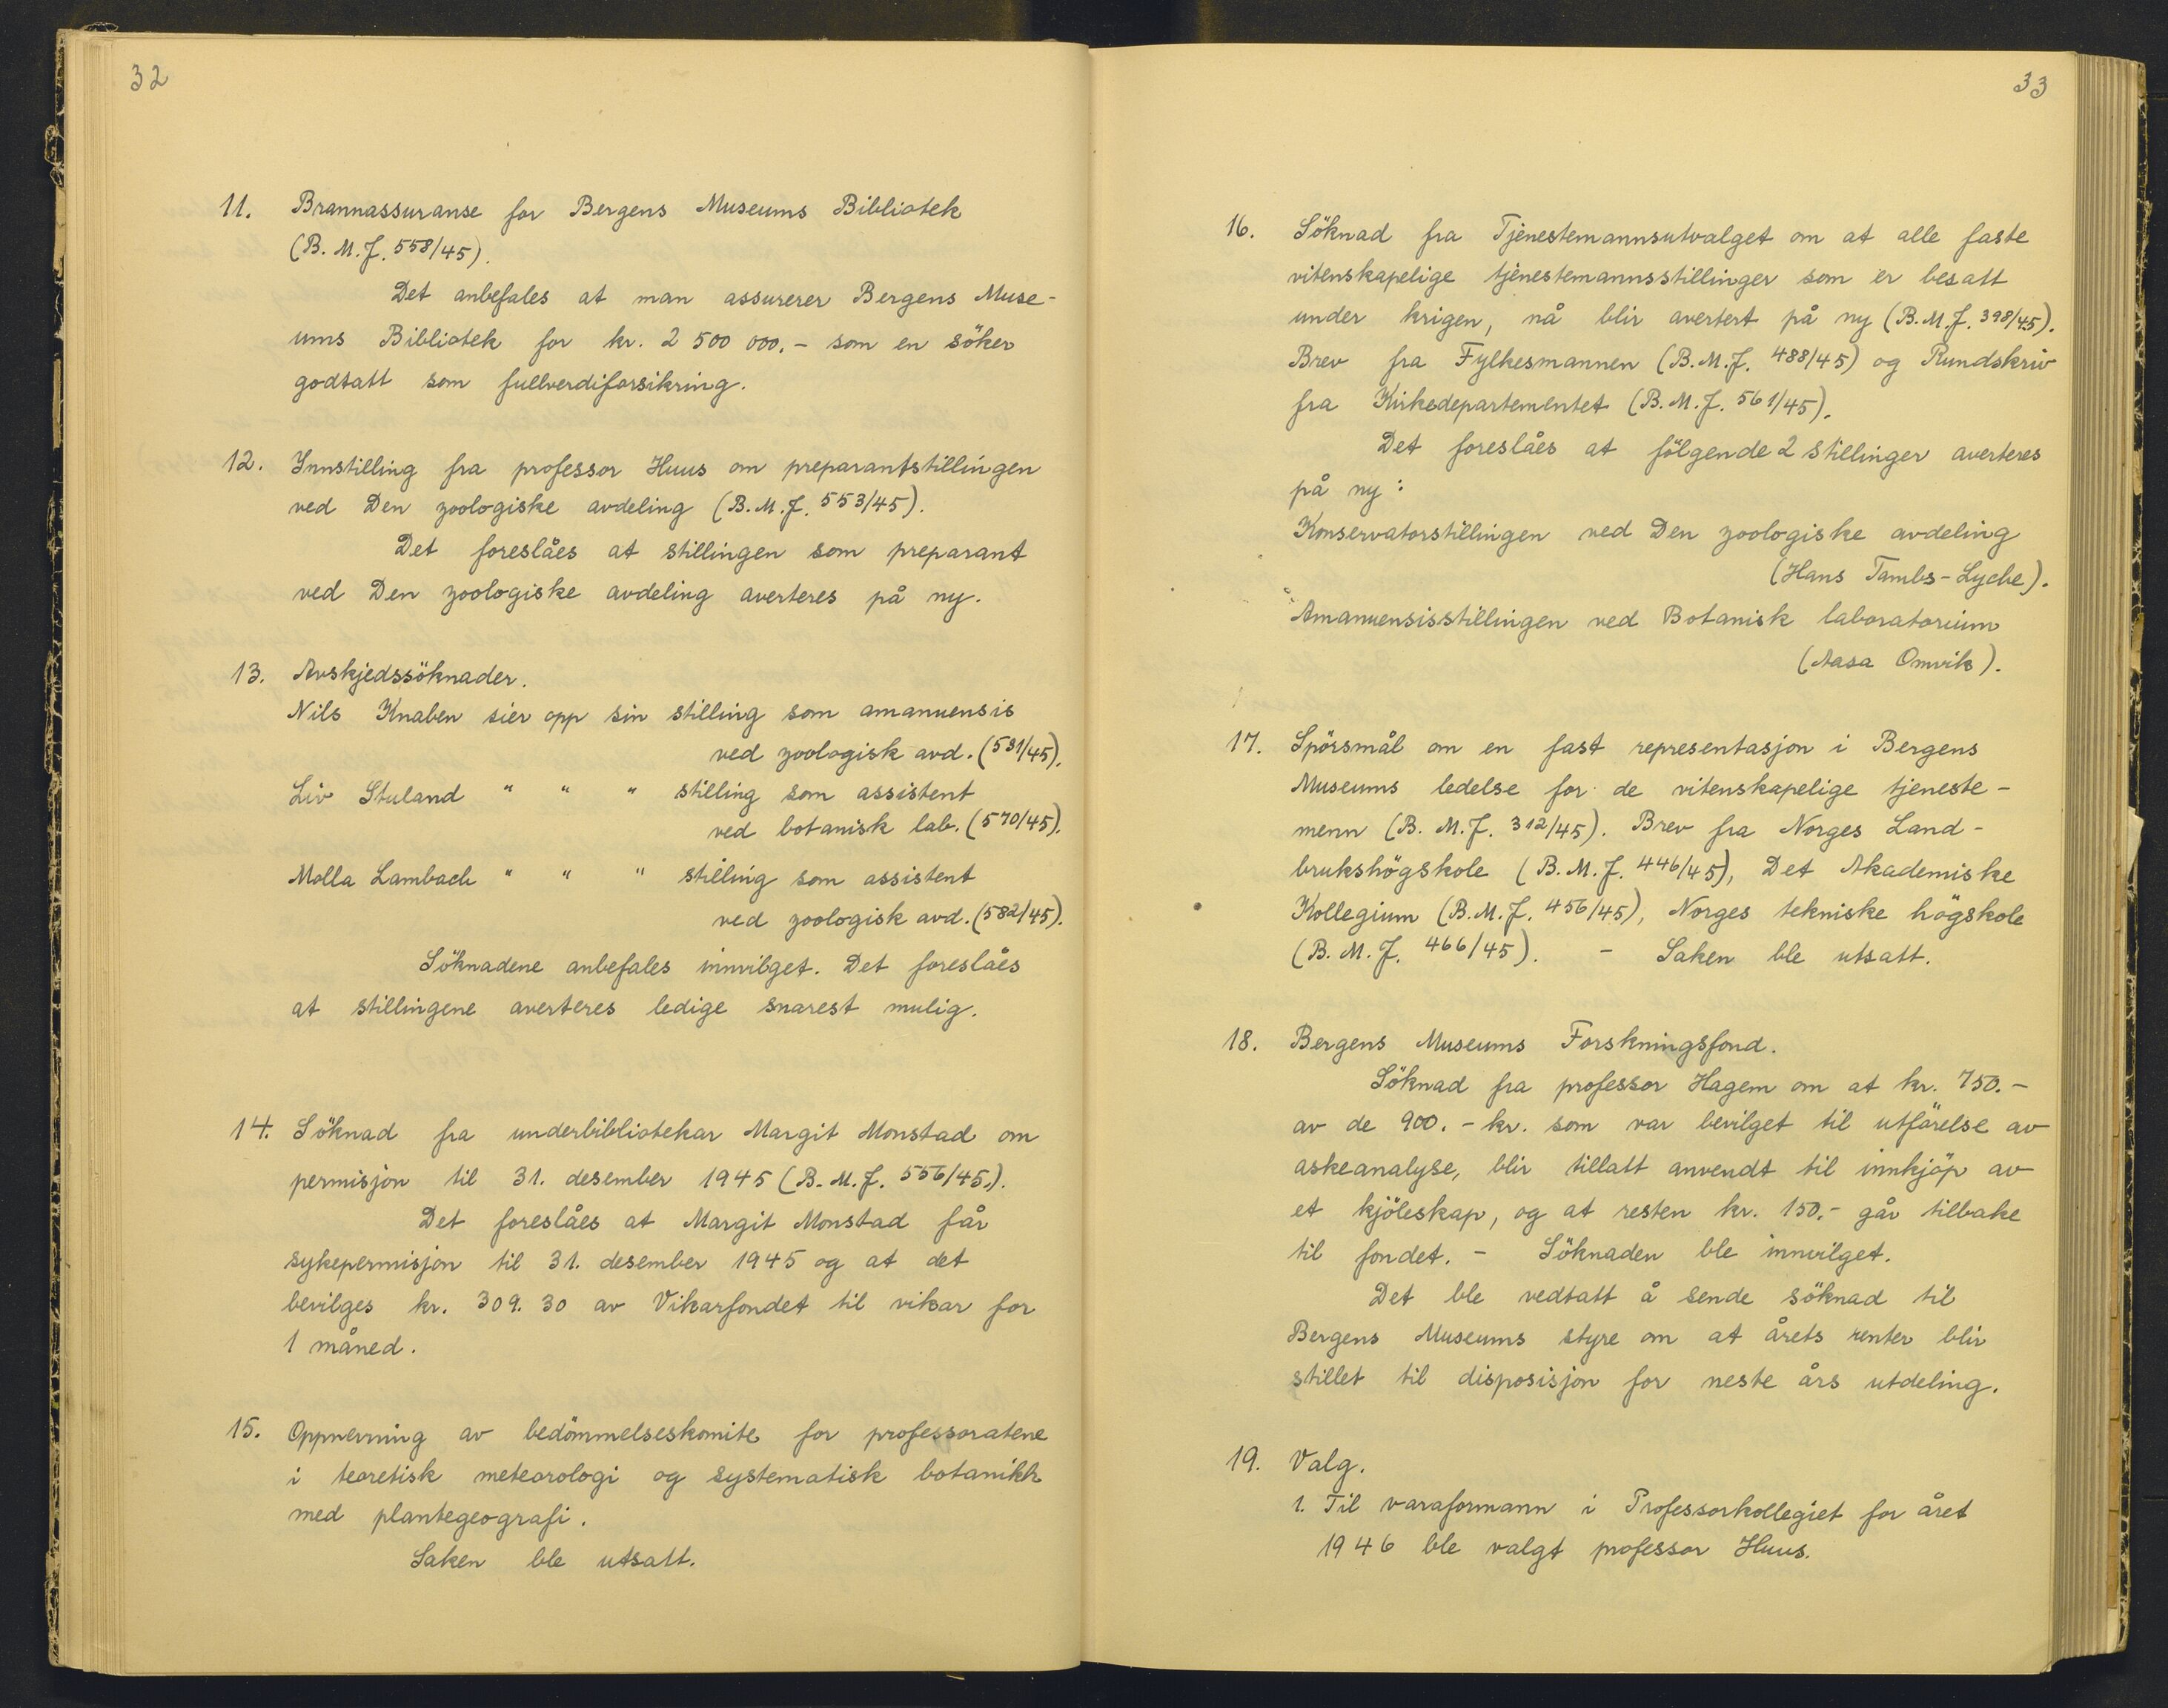 32
11. Brannassuranse for Bergens Museums Bibliotek
(B. M. J. 558/45).
Det anbefales at man assurerer Bergens Muse-
ums Bibliotek for kr. 2 500 000.- som en söker
godtatt som fullverdiforsikring.
12. Innstilling fra professor Huus om preparantstillingen
ved Den zoologiske avdeling (B. M. J. 553/45).
Det foreslåes at stillingen som preparant
ved Den zoologiske avdeling averteres på ny.
13. Avskjedssöknader.
Nils Knaben sier opp sin stilling som amanuensis
ved zoologisk avd. (531/45).
Liv Stuland " " " stilling som assistent
ved botanisk lab. (570/45).
Molla Lambach " " " stilling som assistent
ved zoologisk avd. (582/45).
Söknadene anbefales innvilget. Det foreslåes
at stillingene averteres ledige snarest mulig.
14. Söknad fra underbibliotekar Margit Monstad om
permisjon til 31. desember 1945 (B. M. J. 556/45.).
Det foreslåes at Margit Monstad får
sykepermisjon til 31. desember 1945 og at det
bevilges kr. 309.30 av Vikarfondet til vikar for
1 måned.
15. Oppnevning av bedömmelseskomite for professoratene
i teoretisk meteorologi og systematisk botanikk
med plantegeografi.
Saken ble utsatt.
33
16. Söknad fra Tjenestemannsutvalget om at alle faste
vitenskapelige tjenestemannsstillinger som er besatt
under krigen, nå blir avertert på ny (B. M. J. 398/45).
Brev fra Fylkesmannen (B. M. J. 488/45) og Rundskriv
fra Kirkedepartementet (B. M. J. 561/45).
Det foreslåes at fölgende 2 stillinger averteres
på ny :
Konservatorstillingen ved Den zoologiske avdeling
(Hans Tambs-Lyche).
Amanuensisstillingen ved Botanisk laboratorium
(Aasa Omvik).
17. Spörsmål om en fast representasjon i Bergens
Museums ledelse for de vitenskapelige tjeneste-
menn (B. M. J. 312/45). Brev fra Norges Land-
brukshögskole (B. M. J. 446/45), Det Akademiske
Kollegium (B. M. J. 456/45), Norges tekniske högskole
(B. M. J. 466/45). - Saken ble utsatt.
18. Bergens Museums Forskningsfond.
Söknad fra professor Hagem om at kr. 750.-
av de 900.- kr. som var bevilget til utförelse av
askeanalyse, blir tillatt anvendt til innkjöp av
et kjöleskap, og at resten kr. 150.- går tilbake
til fondet. - Söknaden ble innvilget.
Det ble vedtatt å sende söknad til
Bergens Museums styre om at årets renter blir
stillet til disposisjon for neste års utdeling.
19. Valg.
1. Til varaformann i Professorkollegiet for året
1946 ble valgt professor Huus.